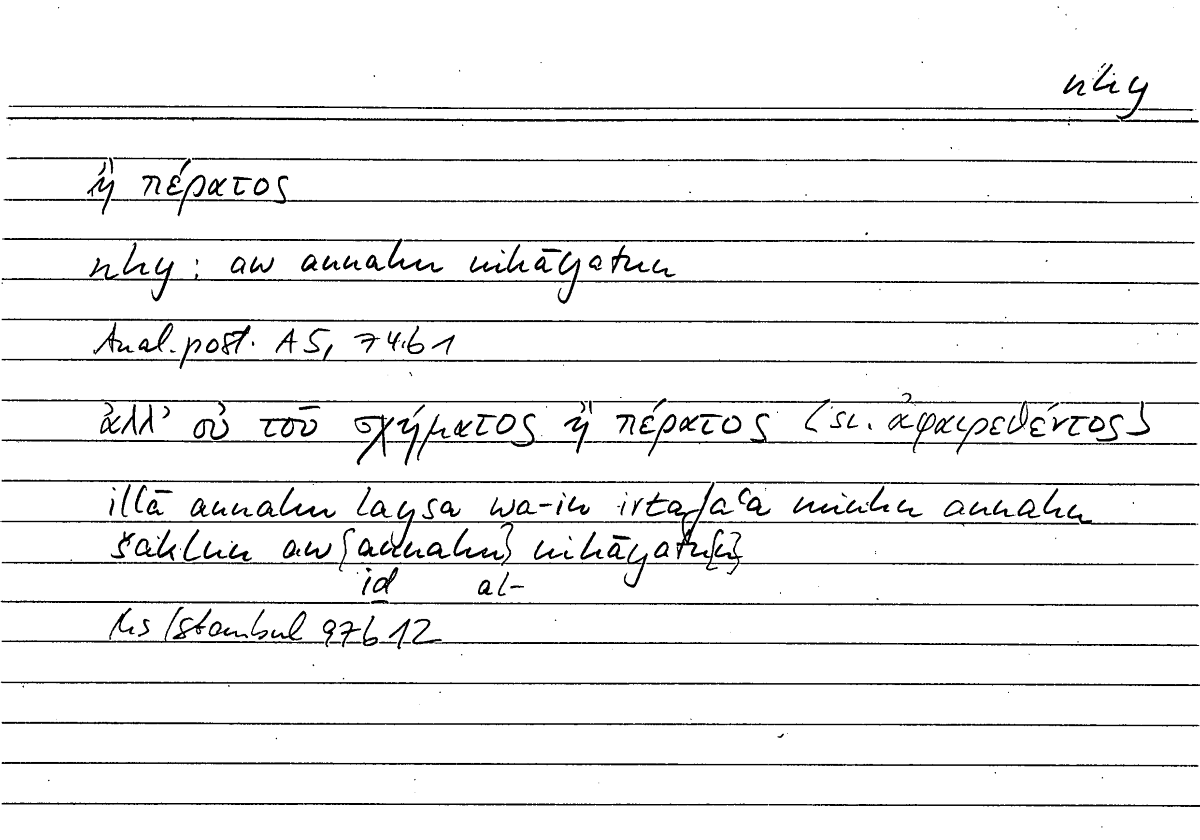 nhy
ἢ πέρατος
nhy : aw annahu nihāyatun
Anal. post. A5, 74b1
ἀλλ' οὐ τοῦ σχήματος ἢ πέρατος (sc. ἀφαιρεθέντος)
illā annahu laysa wa-in irtafaʿa minhu annahu
šaklun aw {annahu} nihāyatu{n}
id al-
Ms Istambul 97b12